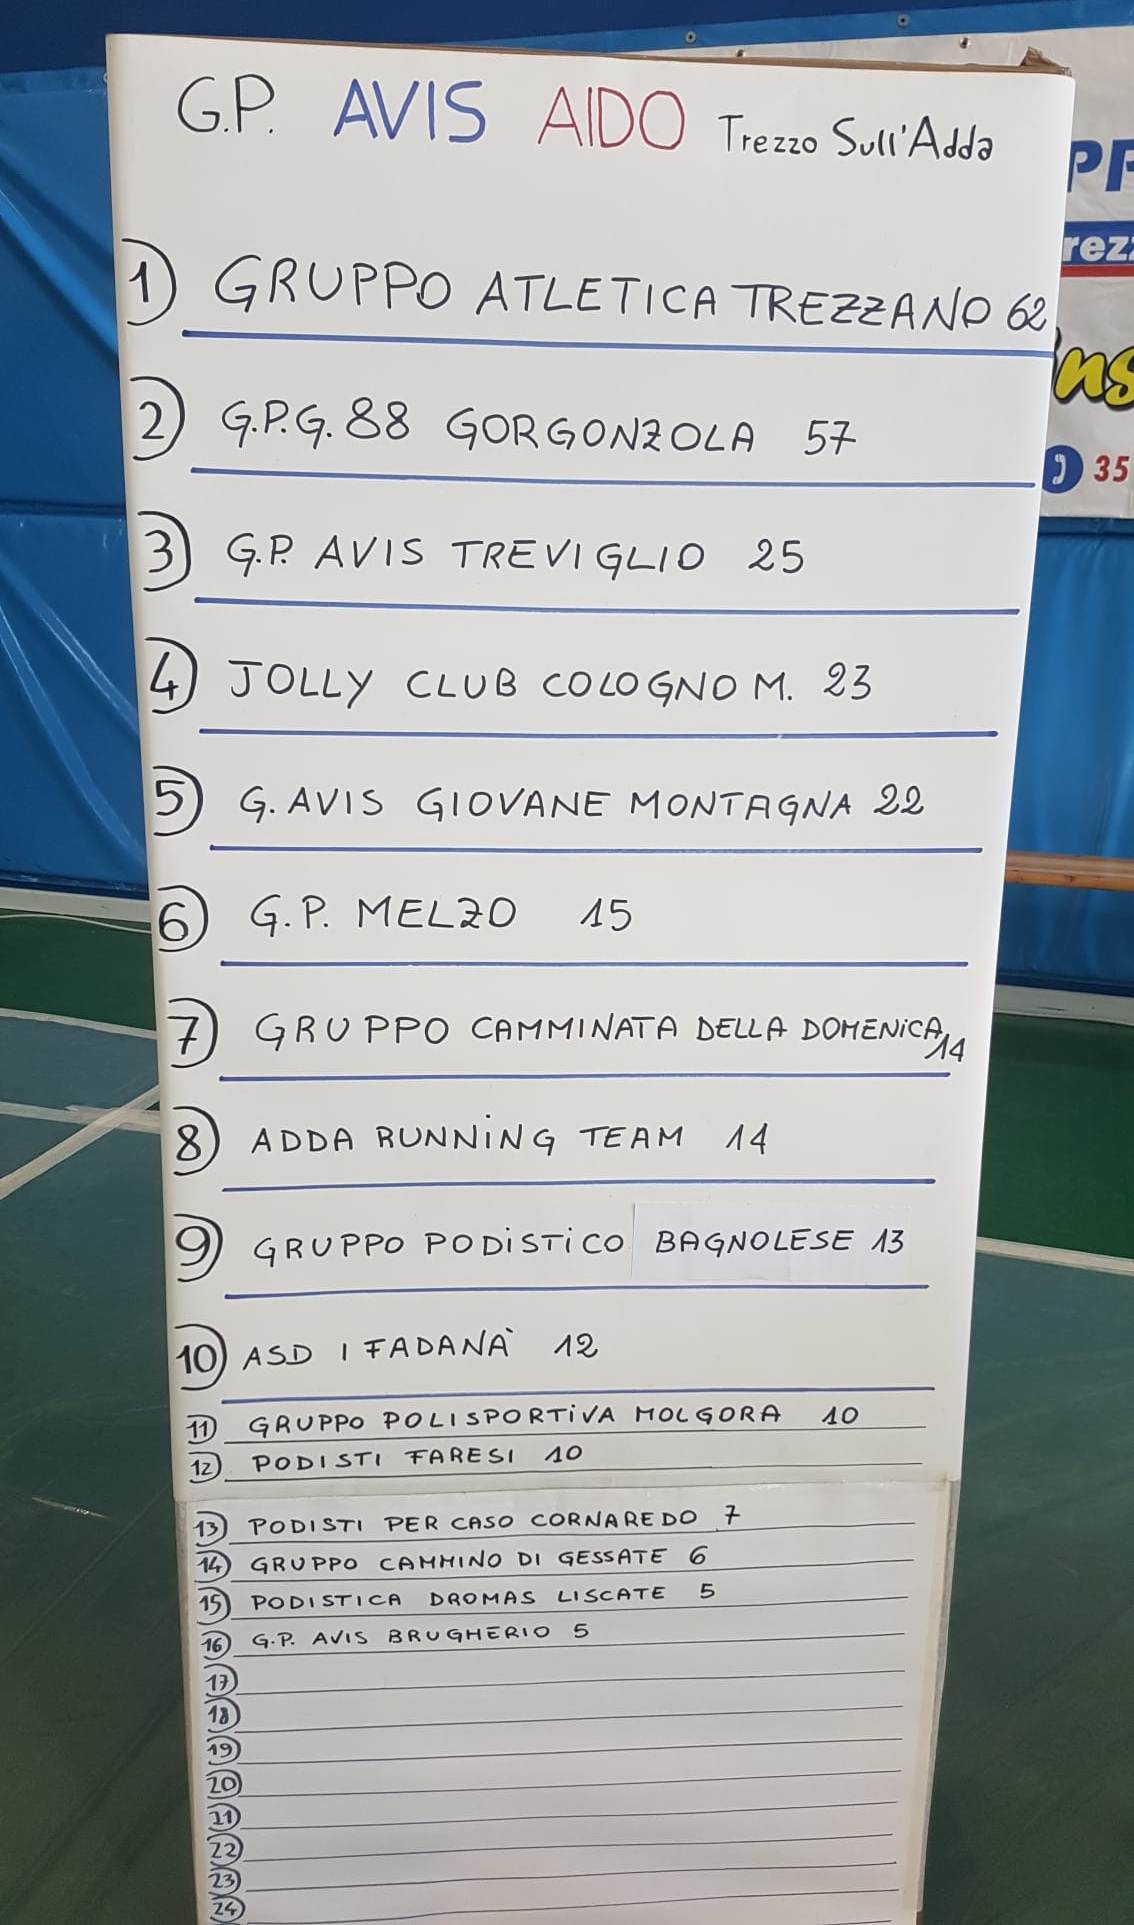 G.P. AVIS AIDO Trezzo Sull'Adda
1) GRUPPO ATLETICA TREZZANO 62
2) G.P.G. 88 GORGONZOLA 57
3) G.P. AVIS TREVIGLIO 25
4) JOLLY CLUB COLOGNO M. 23
5) G. AVIS GIOVANE MONTAGNA 22
6) G.P. MELZO 15
7) GRUPPO CAMMINATA DELLA DOMENICA 14
8) ADDA RUNNING TEAM 14
9) GRUPPO PODISTICO BAGNOLESE 13
10) ASD I FADANÀ 12
11) GRUPPO POLISPORTIVA MOLGORA 10
12) PODISTI FARESI 10
13) PODISTI PER CASO CORNAREDO 7
14) GRUPPO CAMMINO DI GESSATE 6
15) PODISTICA DROMAS LISCATE 5
16) G.P. AVIS BRUGHERIO 5
17)
18)
19)
20)
21)
22)
23)
24)
rezz
ns
35